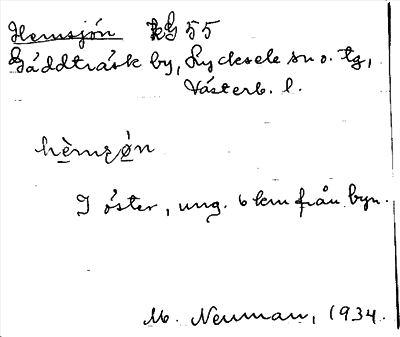 Hemsjön G 55
Gäddträsk by, Lycksele sn o. tg,
Västerb. l.
hèmsǿn
I öster, ung. 6 km från byn.
M. Neuman, 1934.